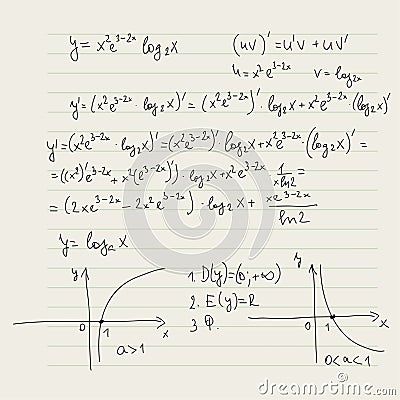 y = x²e³⁻²ˣ log₂x (uv)′ = u′v + uv′
u = x²e³⁻²ˣ v = log₂x
y′ = (x²e³⁻²ˣ · log₂x)′ = (x²e³⁻²ˣ)′ · log₂x + x²e³⁻²ˣ · (log₂x)′
y′ = (x²e³⁻²ˣ · log₂x)′ = (x²e³⁻²ˣ)′ · log₂x + x²e³⁻²ˣ · (log₂x)′ =
= ((x²)′e³⁻²ˣ + x²(e³⁻²ˣ)′) · log₂x + x²e³⁻²ˣ 1/(x ln2) =
= (2xe³⁻²ˣ - 2x²e³⁻²ˣ) · log₂x + xe³⁻²ˣ/ln2
y = logₐx
y 0 1 x
a>1
1. D(y)=(0;+∞)
2. E(y)=R
3
y 0 1 x
0<a<1
dreamstime.com